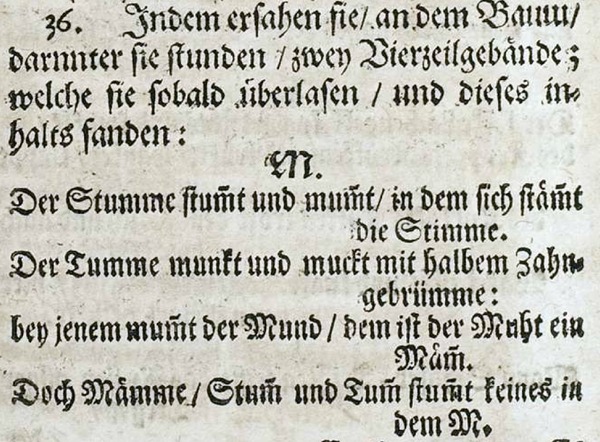 36. Indem ersahen sie/ an dem Baum/
darunter sie stunden / zwey Vierzeilgebände;
welche sie sobald überlasen / und dieses in-
halts fanden:
M.
Der Stumme stum̃t und mum̃t/ in dem sich stäm̃t
die Stimme.
Der Tumme munkt und muckt mit halbem Zahn-
gebrümme:
bey jenem mum̃t der Mund / dem ist der Muht ein
Mäm̃.
Doch Mämme/ Stum̃ und Tum̃ stum̃t keines in
dem M.